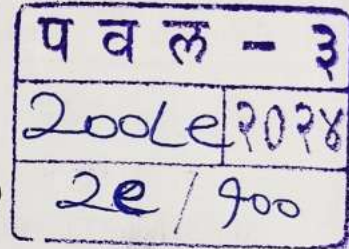 प व ल - ३
२००८९ २०२४
२९ / १००